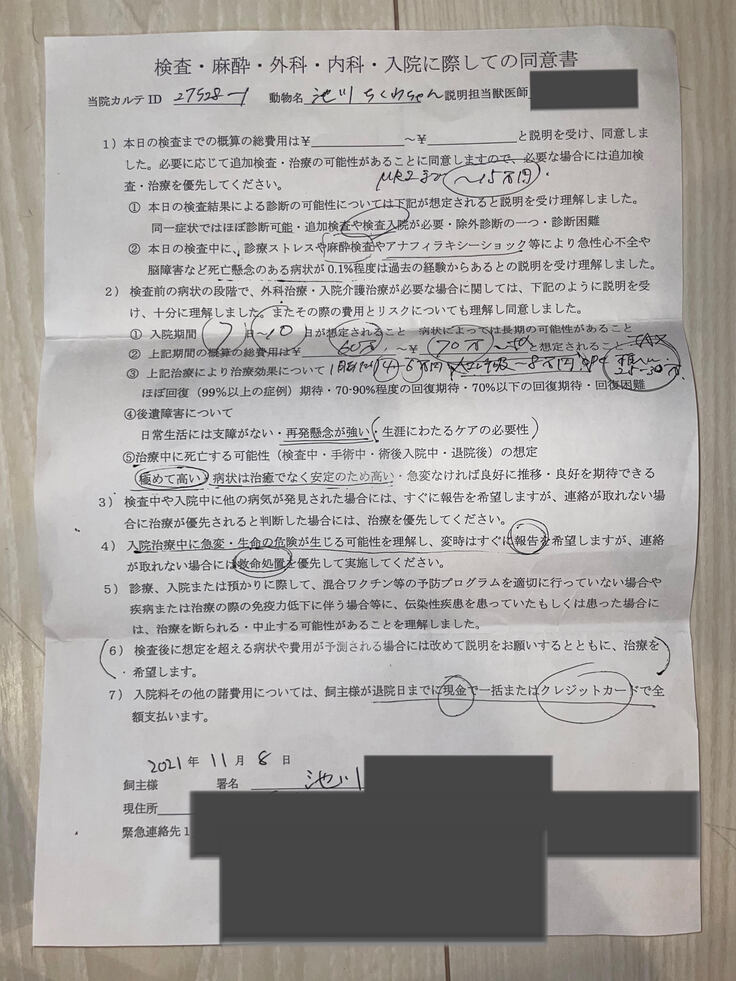 検査・麻酔・外科・内科・入院に際しての同意書
当院カルテID 27528-1 動物名 池川 ちくわちゃん 説明担当獣医師
1）本日の検査までの概算の総費用は¥ ～¥ と説明を受け、同意しま
した。必要に応じて追加検査・治療の可能性があることに同意しますので、必要な場合には追加検
査・治療を優先してください。 MRIまで ～15万円
① 本日の検査結果による診断の可能性については下記が想定されると説明を受け理解しました。
同一症状ではほぼ診断可能・追加検査や検査入院が必要・除外診断の一つ・診断困難
② 本日の検査中に、診療ストレスや麻酔検査やアナフィラキシーショック等により急性心不全や
脳障害など死亡懸念のある病状が0.1%程度は過去の経験からあるとの説明を受け理解しました。
2）検査前の病状の段階で、外科治療・入院介護治療が必要な場合に関しては、下記のように説明を受
け、十分に理解しました。またその際の費用とリスクについても理解し同意しました。
① 入院期間 7 日～10 日が想定されること 病状によっては長期の可能性があること
② 上記期間の概算の総費用は¥ 60万 ～¥ 70万 と想定されること
③ 上記治療により治療効果について 4-6万円 ～8万円
ほぼ回復（99%以上の症例）期待・70-90%程度の回復期待・70%以下の回復期待・回復困難
④後遺障害について
日常生活には支障がない・再発懸念が強い・生涯にわたるケアの必要性
⑤治療中に死亡する可能性（検査中・手術中・術後入院中・退院後）の想定
極めて高い・病状は治癒でなく安定のため高い・急変なければ良好に推移・良好を期待できる
3）検査中や入院中に他の病気が発見された場合には、すぐに報告を希望しますが、連絡が取れない場
合に治療が優先されると判断した場合には、治療を優先してください。
4）入院治療中に急変・生命の危険が生じる可能性を理解し、変時はすぐに報告を希望しますが、連絡
が取れない場合には救命処置を優先して実施してください。
5）診療、入院または預かりに際して、混合ワクチン等の予防プログラムを適切に行っていない場合や
疾病または治療の際の免疫力低下に伴う場合等に、伝染性疾患を患っていたもしくは患った場合に
は、治療を断られる・中止する可能性があることを理解しました。
6）検査後に想定を超える病状や費用が予測される場合には改めて説明をお願いするとともに、治療を
希望します。
7）入院料その他の諸費用については、飼主様が退院日までに現金で一括またはクレジットカードで全
額支払います。
2021年 11月 8日
飼主様 署名 池川
現住所
緊急連絡先1